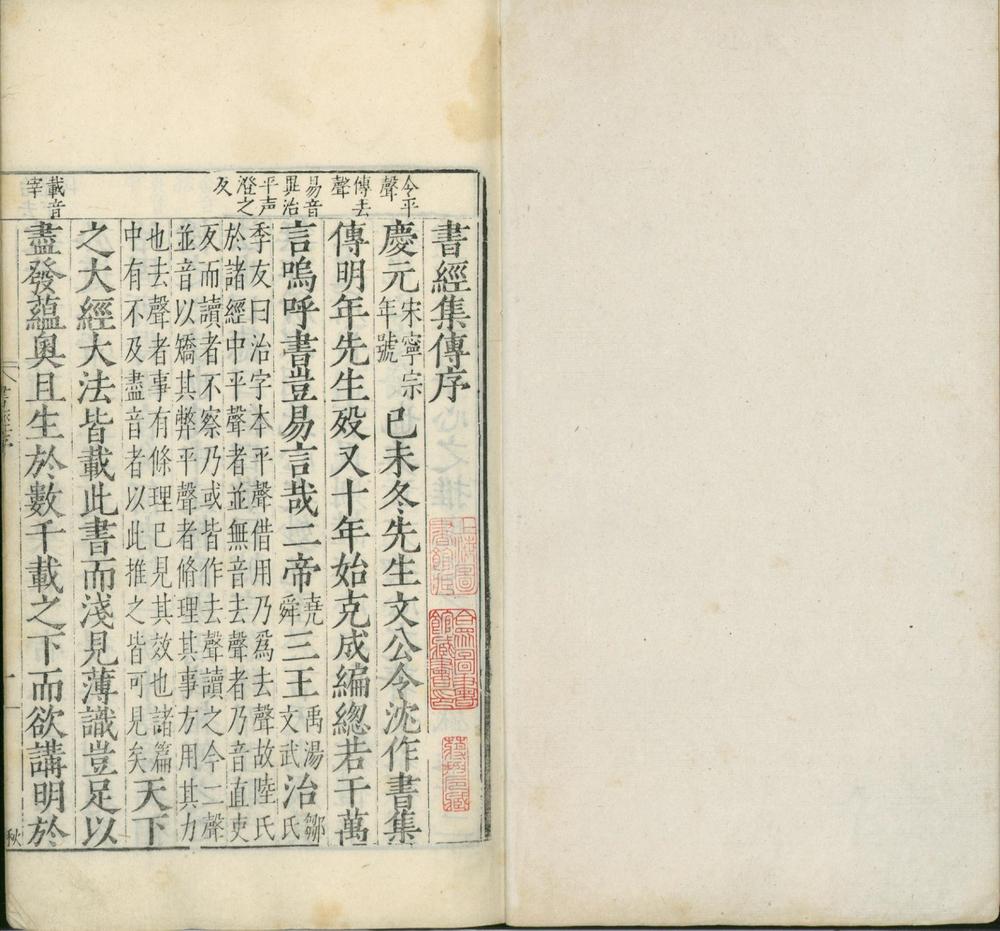 令平
聲
傳去
聲
易音
異治
平声
澄之
反
載音
宰
書經集傳序
慶元宋寧宗年號己未冬先生文公令沈作書集
傳明年先生殁又十年始克成編總若干萬
言嗚呼書豈易言哉二帝堯舜三王禹湯文武治鄒氏
季友曰治字本平聲借用乃爲去聲故陸氏
於諸經中平聲者並無音去聲者乃音直吏
反而讀者不察乃或皆作去聲讀之今二聲
並音以矯其弊平聲者脩理其事方用其力
也去聲者事有條理已見其效也諸篇
中有不及盡音者以此推之皆可見矣天下
之大經大法皆載此書而淺見薄識豈足以
盡發蘊奧且生於數千載之下而欲講明於
書經序
一
秋
上海圖書館藏
合眾圖書館藏書印
蔣抑卮藏